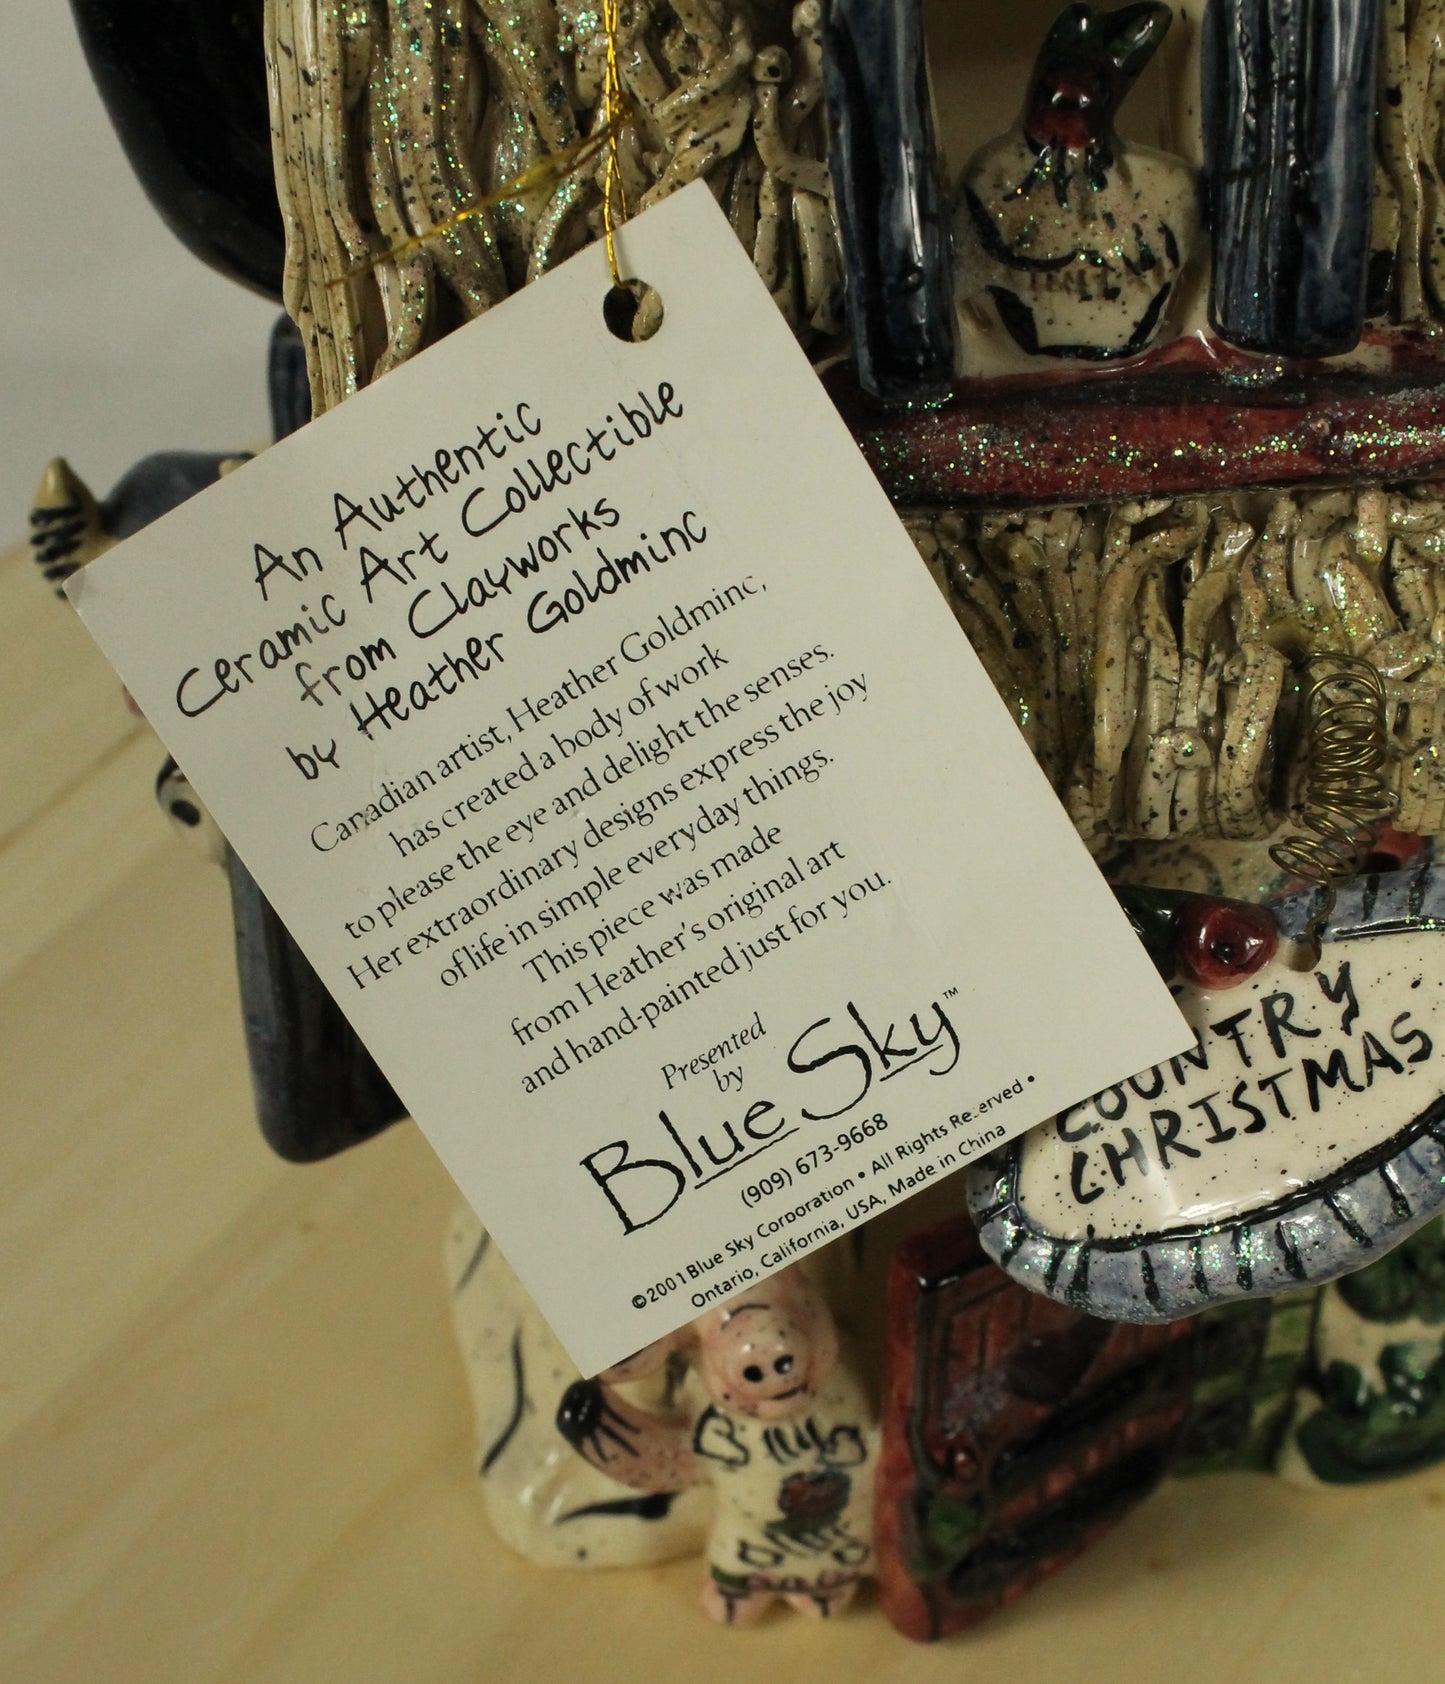 An Authentic
Ceramic Art Collectible
from Clayworks
by Heather Goldminc
Canadian artist, Heather Goldminc,
has created a body of work
to please the eye and delight the senses.
Her extraordinary designs express the joy
of life in simple everyday things.
This piece was made
from Heather's original art
and hand-painted just for you.
Presented
by
Blue Sky™
(909) 673-9668
©2001 Blue Sky Corporation • All Rights Reserved •
Ontario, California, USA, Made in China
COUNTRY
CHRISTMAS